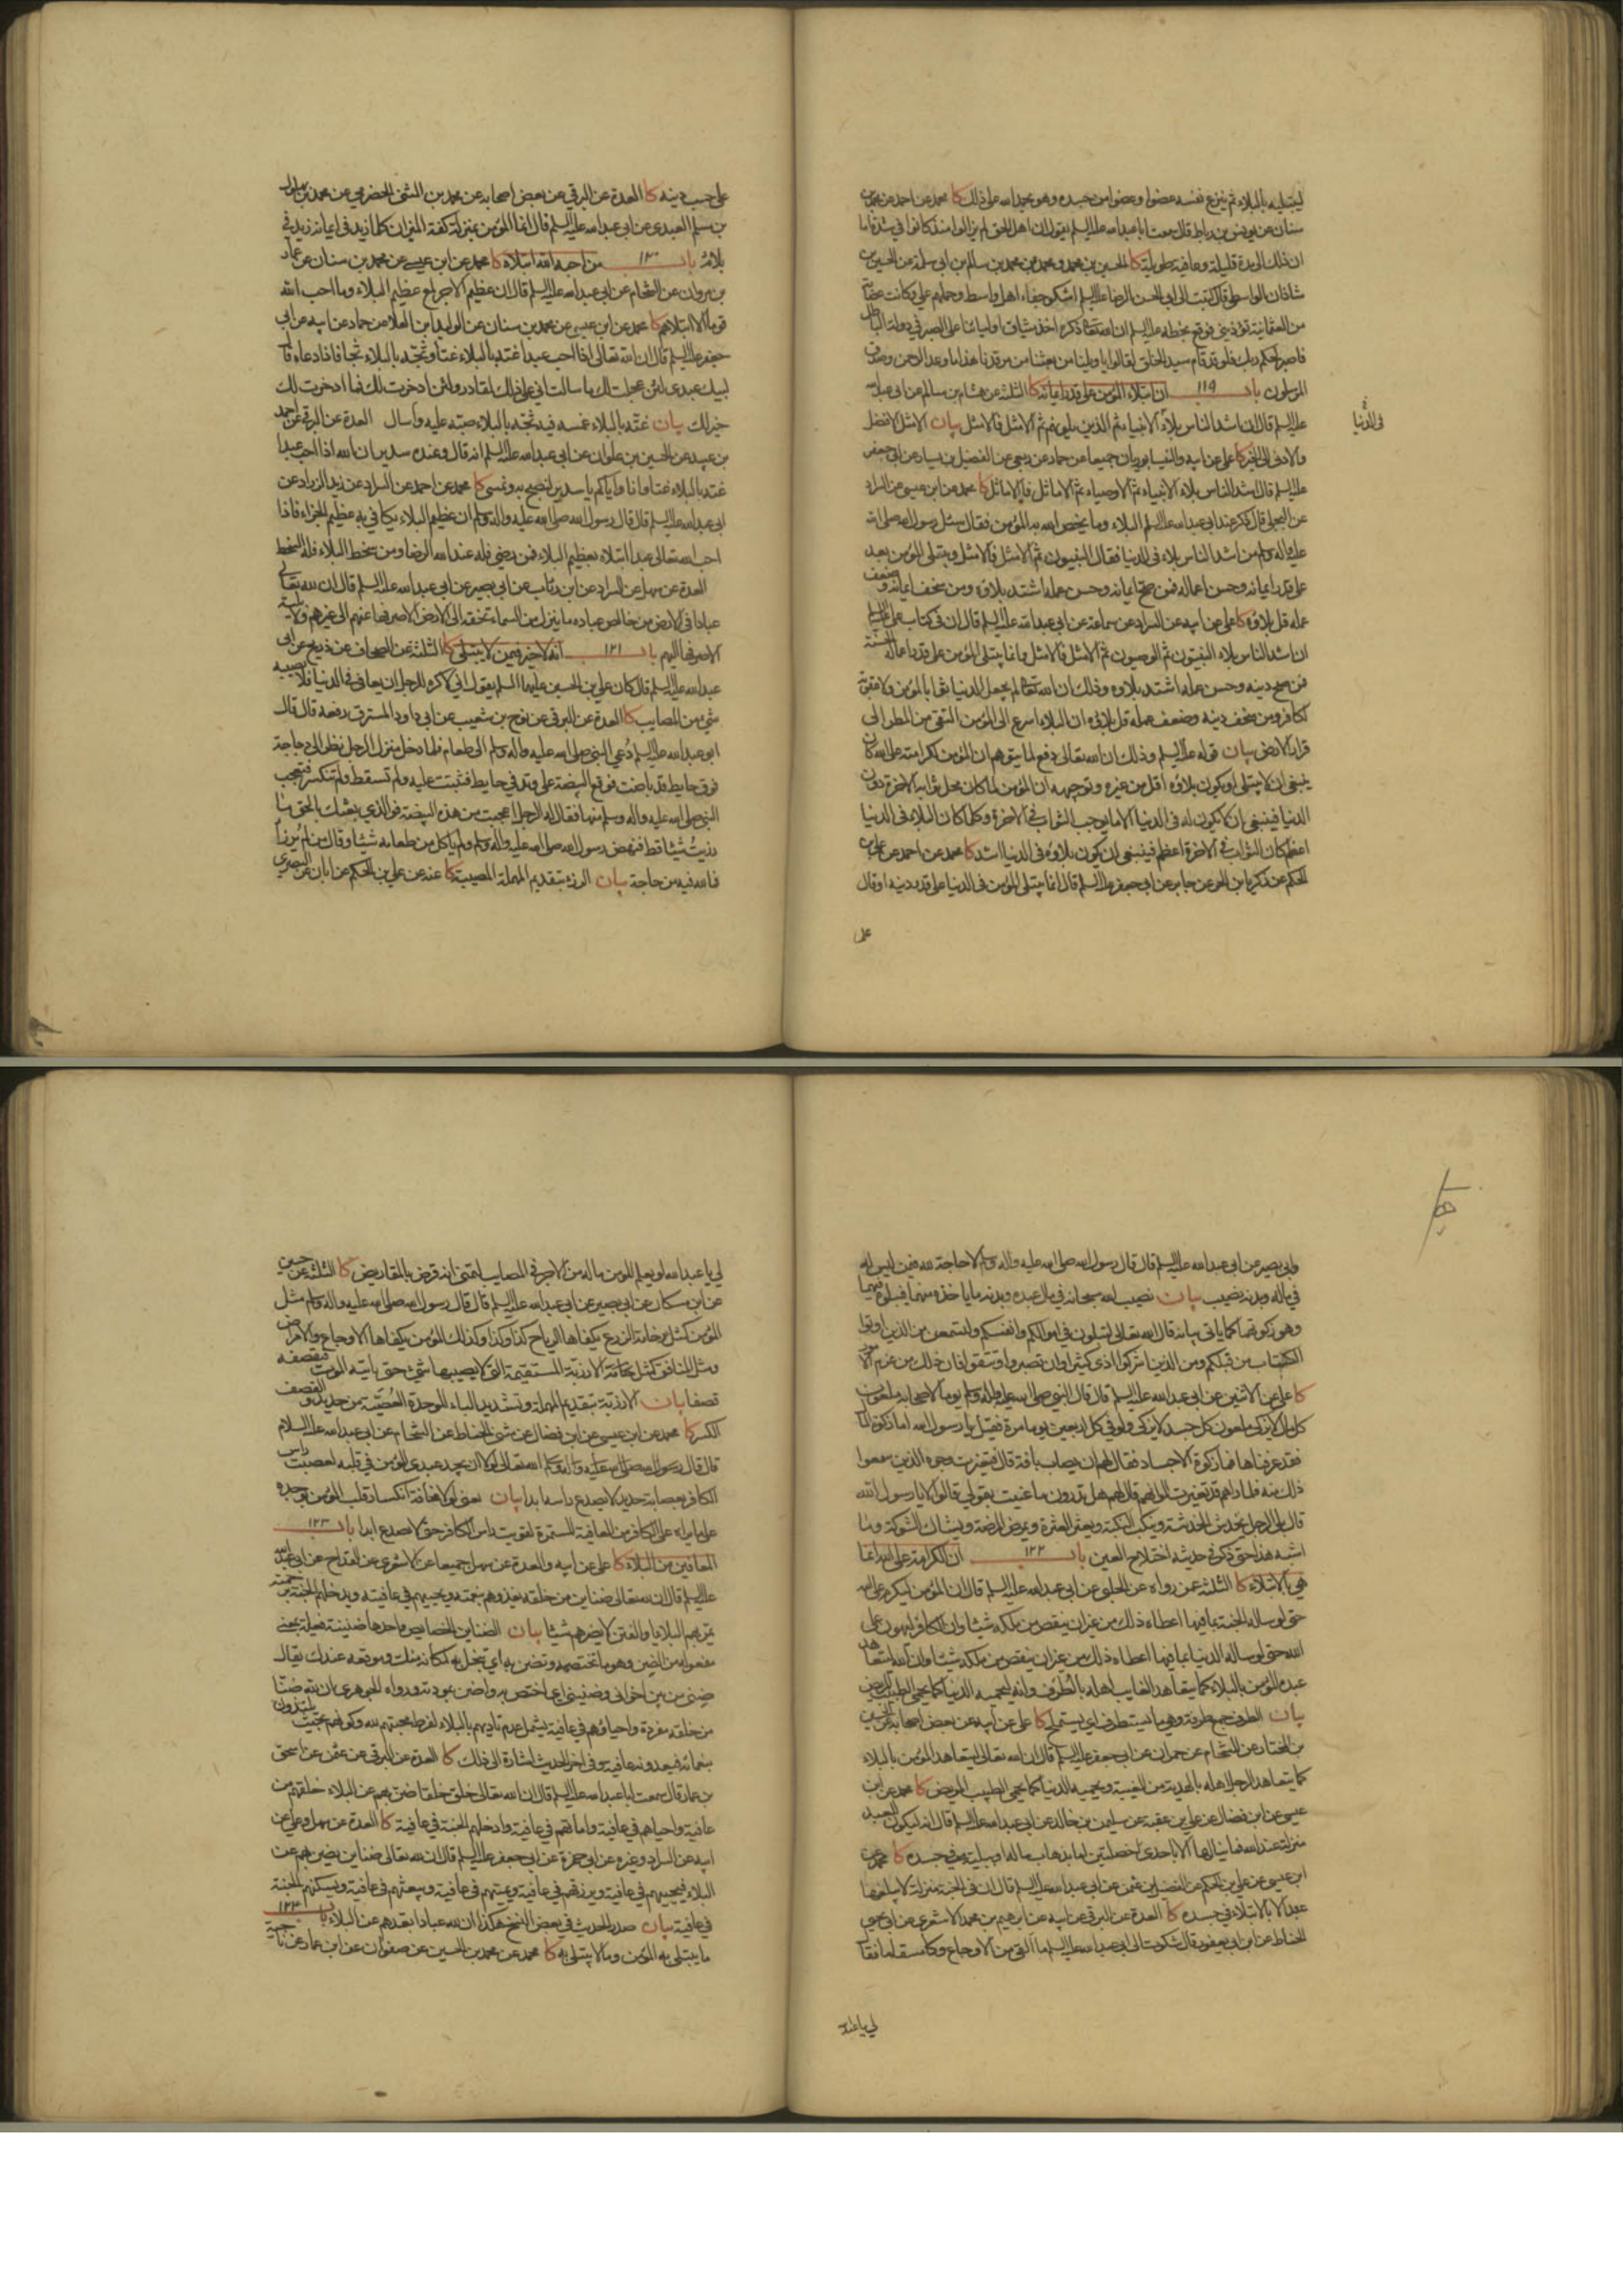 ليبتليه بالبلاء ثم ينزع نفسه عضوا وعضوا من جسده وهو يحمد الله على ذلك كا محمد عن احمد عن محمد بن
سنان عن يونس بن رباط قال سمعت ابا عبد الله عليه السلم يقول ان اهل الحق لم يزالوا منذ كانوا في شدة اما
ان ذلك الى مدة قليلة وعافية طويلة كا الحسين بن محمد ومحمد عن محمد بن سالم بن ابي سلمة عن الحسن بن
شاذان الواسطي قال كتبت الى ابي الحسن الرضا عليه السلم اشكو جفاء اهل واسط وحملهم علي وكانت عصابة
من العثمانية تؤذيني فوقع بخطه عليه السلم ان الله تعالى ذكره اخذ ميثاق اوليائنا على الصبر في دولة الباطل
فاصبر لحكم ربك فلو قد قام سيد الخلق لقالوا يا ويلنا من بعثنا من مرقدنا هذا ما وعد الرحمن وصدق
المرسلون باب ١١٩ ان ابتلاء المؤمن على قدر ايمانه كا الثلثة عن هشام بن سالم عن ابي عبد الله
عليه السلم قال ان اشد الناس بلاء الانبياء ثم الذين يلونهم ثم الامثل فالامثل بيان الامثل الافضل
في الدنيا
والادنى الى الخير كا علي عن ابيه والنيسابوريان جميعا عن حماد عن ربعي عن الفضيل بن يسار عن ابي جعفر
عليه السلم قال اشد الناس بلاء الانبياء ثم الاوصياء ثم الاماثل فالاماثل كا محمد عن ابن عيسى عن السراد
عن البجلي قال ذكر عند ابي عبد الله عليه السلم البلاء وما يخص الله به المؤمن فقال سئل رسول الله صلى الله
عليه واله وسلم من اشد الناس بلاء في الدنيا فقال النبيون ثم الامثل فالامثل ويبتلى المؤمن بعد
على قدر ايمانه وحسن اعماله فمن صح ايمانه وحسن عمله اشتد بلاؤه ومن سخف ايمانه وضعف
عمله قل بلاؤه كا علي عن ابيه عن السراد عن سماعة عن ابي عبد الله عليه السلم قال ان في كتاب علي عليه السلم
ان اشد الناس بلاء النبيون ثم الوصيون ثم الامثل فالامثل وانما يبتلى المؤمن على قدر اعماله الحسنة
فمن صح دينه وحسن عمله اشتد بلاؤه وذلك ان الله تعالى لم يجعل الدنيا ثوابا لمؤمن ولا عقوبة
لكافر ومن سخف دينه وضعف عمله قل بلاؤه ان البلاء اسرع الى المؤمن التقي من المطر الى
قرار الارض بيان قوله عليه السلم وذلك ان الله تعالى دفع لما يتوهم ان المؤمن لكرامته على الله كان
ينبغي ان لا يبتلى او يكون بلاؤه اقل من غيره وتوجيهه ان المؤمن لما كان محل ثوابه الاخرة دون
الدنيا فينبغي ان لا يكون له في الدنيا الا ما يوجب الثواب في الاخرة وكلما كان البلاء في الدنيا
اعظم كان الثواب في الاخرة اعظم فينبغي ان يكون بلاؤه في الدنيا اشد كا محمد عن احمد عن علي بن
الحكم عن زكريا بن الحر عن جابر عن ابي جعفر عليه السلم قال انما يبتلى المؤمن في الدنيا على قدر دينه او قال
على
على حسب دينه كا العدة عن البرقي عن بعض اصحابه عن محمد بن المثنى الحضرمي عن محمد بن بهلول
بن مسلم العبدي عن ابي عبد الله عليه السلم قال انما المؤمن بمنزلة كفة الميزان كلما زيد في ايمانه زيد في
بلائه باب ١٢٠ من احبه الله ابتلاه كا محمد عن ابن عيسى عن محمد بن سنان عن عمار
بن مروان عن الشحام عن ابي عبد الله عليه السلم قال ان عظيم الاجر لمع عظيم البلاء وما احب الله
قوما الا ابتلاهم كا محمد عن ابن عيسى عن محمد بن سنان عن الوليد بن العلا عن حماد عن ابيه عن ابي
جعفر عليه السلم قال ان الله تعالى اذا احب عبدا غته بالبلاء غتا وثجه بالبلاء ثجا فاذا دعاه قال
لبيك عبدي لئن عجلت لك ما سالت اني على ذلك لقادر ولئن ادخرت لك فما ادخرت لك
خير لك بيان غته بالبلاء غمسه فيه ثجه بالبلاء صبه عليه واسال العدة عن البرقي عن احمد
بن عبيد عن الحسين بن علوان عن ابي عبد الله عليه السلم انه قال وعنده سدير ان الله اذا احب عبدا
غته بالبلاء غتا وانا واياكم يا سدير لنصبح به ونمسي كا محمد عن احمد عن السراد عن زيد الزراد عن
ابي عبد الله عليه السلم قال قال رسول الله صلى الله عليه واله وسلم ان عظيم البلاء يكافي به عظيم الجزاء فاذا
احب الله تعالى عبدا ابتلاه بعظيم البلاء فمن رضي فله عند الله الرضا ومن سخط البلاء فله السخط
العدة عن سهل عن السراد عن ابن رئاب عن ابي بصير عن ابي عبد الله عليه السلم قال ان لله تعالى
عبادا في الارض من خالص عباده ما ينزل من السماء تحفة الى الارض الا صرفها عنهم الى غيرهم ولا بلية
الا صرفها اليهم باب ١٢١ انه لا خير فيمن لا يبتلى كا الثلثة عن الصحاف عن ذريح عن ابي
عبد الله عليه السلم قال كان علي بن الحسين عليهما السلم يقول اني لاكره للرجل ان يعافى في الدنيا فلا يصيبه
شيء من المصايب كا العدة عن البرقي عن نوح بن شعيب عن ابي داود المسترق رفعه قال قال
ابو عبد الله عليه السلم دُعي النبي صلى الله عليه واله وسلم الى طعام فلما دخل منزل الرجل نظر الى دجاجة
فوق حايط قد باضت فوقع البيضة على وتد في حايط فثبتت عليه ولم تسقط ولم تنكسر فتعجب
النبي صلى الله عليه واله وسلم منها فقال له الرجل اعجبت من هذه البيضة فوالذي بعثك بالحق ما
رزيتُ شيئا قط فنهض رسول الله صلى الله عليه واله وسلم ولم ياكل من طعامه شيئا وقال من لم يُرزأ
فما لله فيه من حاجة بيان الرزء بتقديم المهملة المصيبة كا عنه عن علي بن الحكم عن ابان عن البصري
وابي بصير عن ابي عبد الله عليه السلم قال قال رسول الله صلى الله عليه واله وسلم لا حاجة لله فيمن ليس له
في ماله وبدنه نصيب بيان نصيب الله سبحانه في مال عبده وبدنه ما ياخذه منهما ليبلوه فيهما
وهو زكوتهما كما ياتي بيانه قال الله تعالى لتبلون في اموالكم وانفسكم ولتسمعن من الذين اوتوا
الكتاب من قبلكم ومن الذين اشركوا اذى كثيرا وان تصبروا وتتقوا فان ذلك من عزم الامور
كا علي عن الاثنين عن ابي عبد الله عليه السلم قال قال النبي صلى الله عليه واله وسلم يوما لاصحابه ملعون
كل مال لا يزكى ملعون كل جسد لا يزكى ولو في كل اربعين يوما مرة فقيل يا رسول الله اما زكوة المال
فقد عرفناها فما زكوة الاجساد فقال لهم ان يصاب بافة قال فتغيرت وجوه الذين سمعوا
ذلك منه فلما راهم قد تغيرت الوانهم قال لهم هل تدرون ما عنيت بقولي قالوا لا يا رسول الله
قال بلى الرجل يخدش الخدشة وينكب النكبة ويعثر العثرة ويمرض المرضة ويشاك الشوكة وما
اشبه هذا حتى ذكر في حديثه اختلاج العين باب ١٢٢ ان الكرامة على الله انما
هي بالابتلاء كا الثلثة عمن رواه عن الحلبي عن ابي عبد الله عليه السلم قال ان المؤمن ليكرم على الله
حتى لو ساله الجنة بما فيها اعطاه ذلك من غير ان ينقص من ملكه شيئا وان الكافر ليهون على
الله حتى لو ساله الدنيا بما فيها اعطاه ذلك من غير ان ينقص من ملكه شيئا وان الله ليتعاهد
عبده المؤمن بالبلاء كما يتعاهد الغايب اهله بالطرف وانه ليحميه الدنيا كما يحمي الطبيب المريض
بيان الطرف جمع طرفة وهي ما يستطرف اي يستملح كا علي عن ابيه عن بعض اصحابه عن الحسين
بن المختار عن الشحام عن حمران عن ابي جعفر عليه السلم قال ان الله تعالى ليتعاهد المؤمن بالبلاء
كما يتعاهد الرجل اهله بالهدية من الغيبة ويحميه الدنيا كما يحمي الطبيب المريض كا محمد عن ابن
عيسى عن ابن فضال عن علي بن عقبة عن سليمن بن خالد عن ابي عبد الله عليه السلم قال انه ليكون للعبد
منزلة عند الله فما ينالها الا باحدى خصلتين اما بذهاب ماله او ببلية في جسده كا محمد عن
ابن عيسى عن علي بن الحكم عن الفضيل بن عثمن عن ابي عبد الله عليه السلم قال ان في الجنة منزلة لا يبلغها
عبد الا بالابتلاء في جسده كا العدة عن البرقي عن ابيه عن ابرهيم بن محمد الاشعري عن ابي يحيى
الحناط عن ابن ابي يعفور قال شكوت الى ابي عبد الله عليه السلم ما القى من الاوجاع وكان مسقاما فقال
لي يا عبد
لي يا عبد الله لو يعلم المؤمن ما له من الاجر في المصايب لتمنى انه قرض بالمقاريض كا الثلثة عن حسين
عن ابن مسكان عن ابي بصير عن ابي عبد الله عليه السلم قال قال رسول الله صلى الله عليه واله وسلم مثل
المؤمن كمثل خامة الزرع يكفاها الرياح كذا وكذا وكذلك المؤمن يكفاها الاوجاع والامراض
ومثل المنافق كمثل الارزبة المستقيمة التي لا يصيبها شيء حتى ياتيه الموت فيقصفه
قصفا بيان الارزبة بتقديم المهملة وتشديد الباء الموحدة العُصية من حديد والقصف
الكسر كا محمد عن ابن عيسى عن ابن فضال عن مثنى الحناط عن الشحام عن ابي عبد الله عليه السلام
قال قال رسول الله صلى الله عليه واله وسلم قال الله تعالى لولا ان يجد عبدي المؤمن في قلبه لعصبت راس
الكافر بعصابة حديد لا يصدع راسه ابدا بيان يعني لولا مخافة انكسار قلب المؤمن بوجده
على ما يراه على الكافر من العافية المستمرة لقويت راس الكافر حتى لا يصدع ابدا باب ١٢٣
المعافين من البلاء كا علي عن ابيه والعدة عن سهل جميعا عن الاشعري عن القداح عن ابي عبد الله
عليه السلم قال ان لله تعالى ضناين من خلقه يغذوهم بنعمته ويحبيهم في عافيته ويدخلهم الجنة برحمته
تمر بهم البلايا والفتن لا يضرهم شيئا بيان الضناين الخصايص واحدها ضنينة فعيلة بمعنى
مفعولة من الضن وهو ما تختصه وتضن به اي تبخل به لمكانه منك وموقعه عندك يقال
ضني من بين اخواني وضنيني اي اختص به واضن بمودته ورواه الجوهري ان لله ضنا
من خلقه مفردة واحياؤهم في عافية يشمل عدم تاذيهم بالبلاء لفرط محبتهم لله وكونهم بحيث يلتذون
ببلائه فيعدونه عافية وفي اخر الحديث اشارة الى ذلك كا العدة عن البرقي عن عثمن عن اسحق
بن عمار قال سمعت ابا عبد الله عليه السلم قال ان الله تعالى خلق خلقا ضن بهم عن البلاء خلقهم من
عافية واحياهم في عافية واماتهم في عافية وادخلهم الجنة في عافية كا العدة عن سهل وعلي عن
ابيه عن السراد وغيره عن ابي حمزة عن ابي جعفر عليه السلم قال ان لله تعالى ضناين يضن بهم عن
البلاء فيحييهم في عافية ويرزقهم في عافية ويميتهم في عافية ويبعثهم في عافية ويسكنهم الجنة
في عافية بيان صدر الحديث في بعض النسخ هكذا ان لله عبادا يقدمهم عن البلاء باب ١٢٤
ما يبتلى به المؤمن وما لا يبتلى به كا محمد عن محمد بن الحسين عن صفوان عن ابن عمار عن ناجية